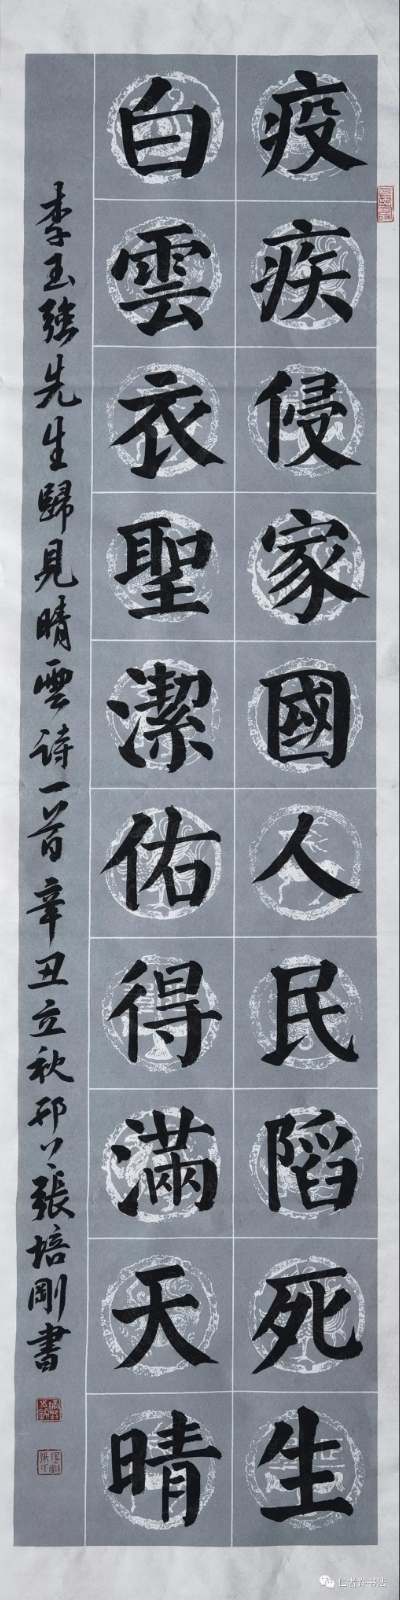 疫疾侵家國人民陷死生
白雲衣聖潔佑得滿天晴
李玉強先生歸見晴雲詩一首辛丑立秋邠人張培剛書
仁者許书法